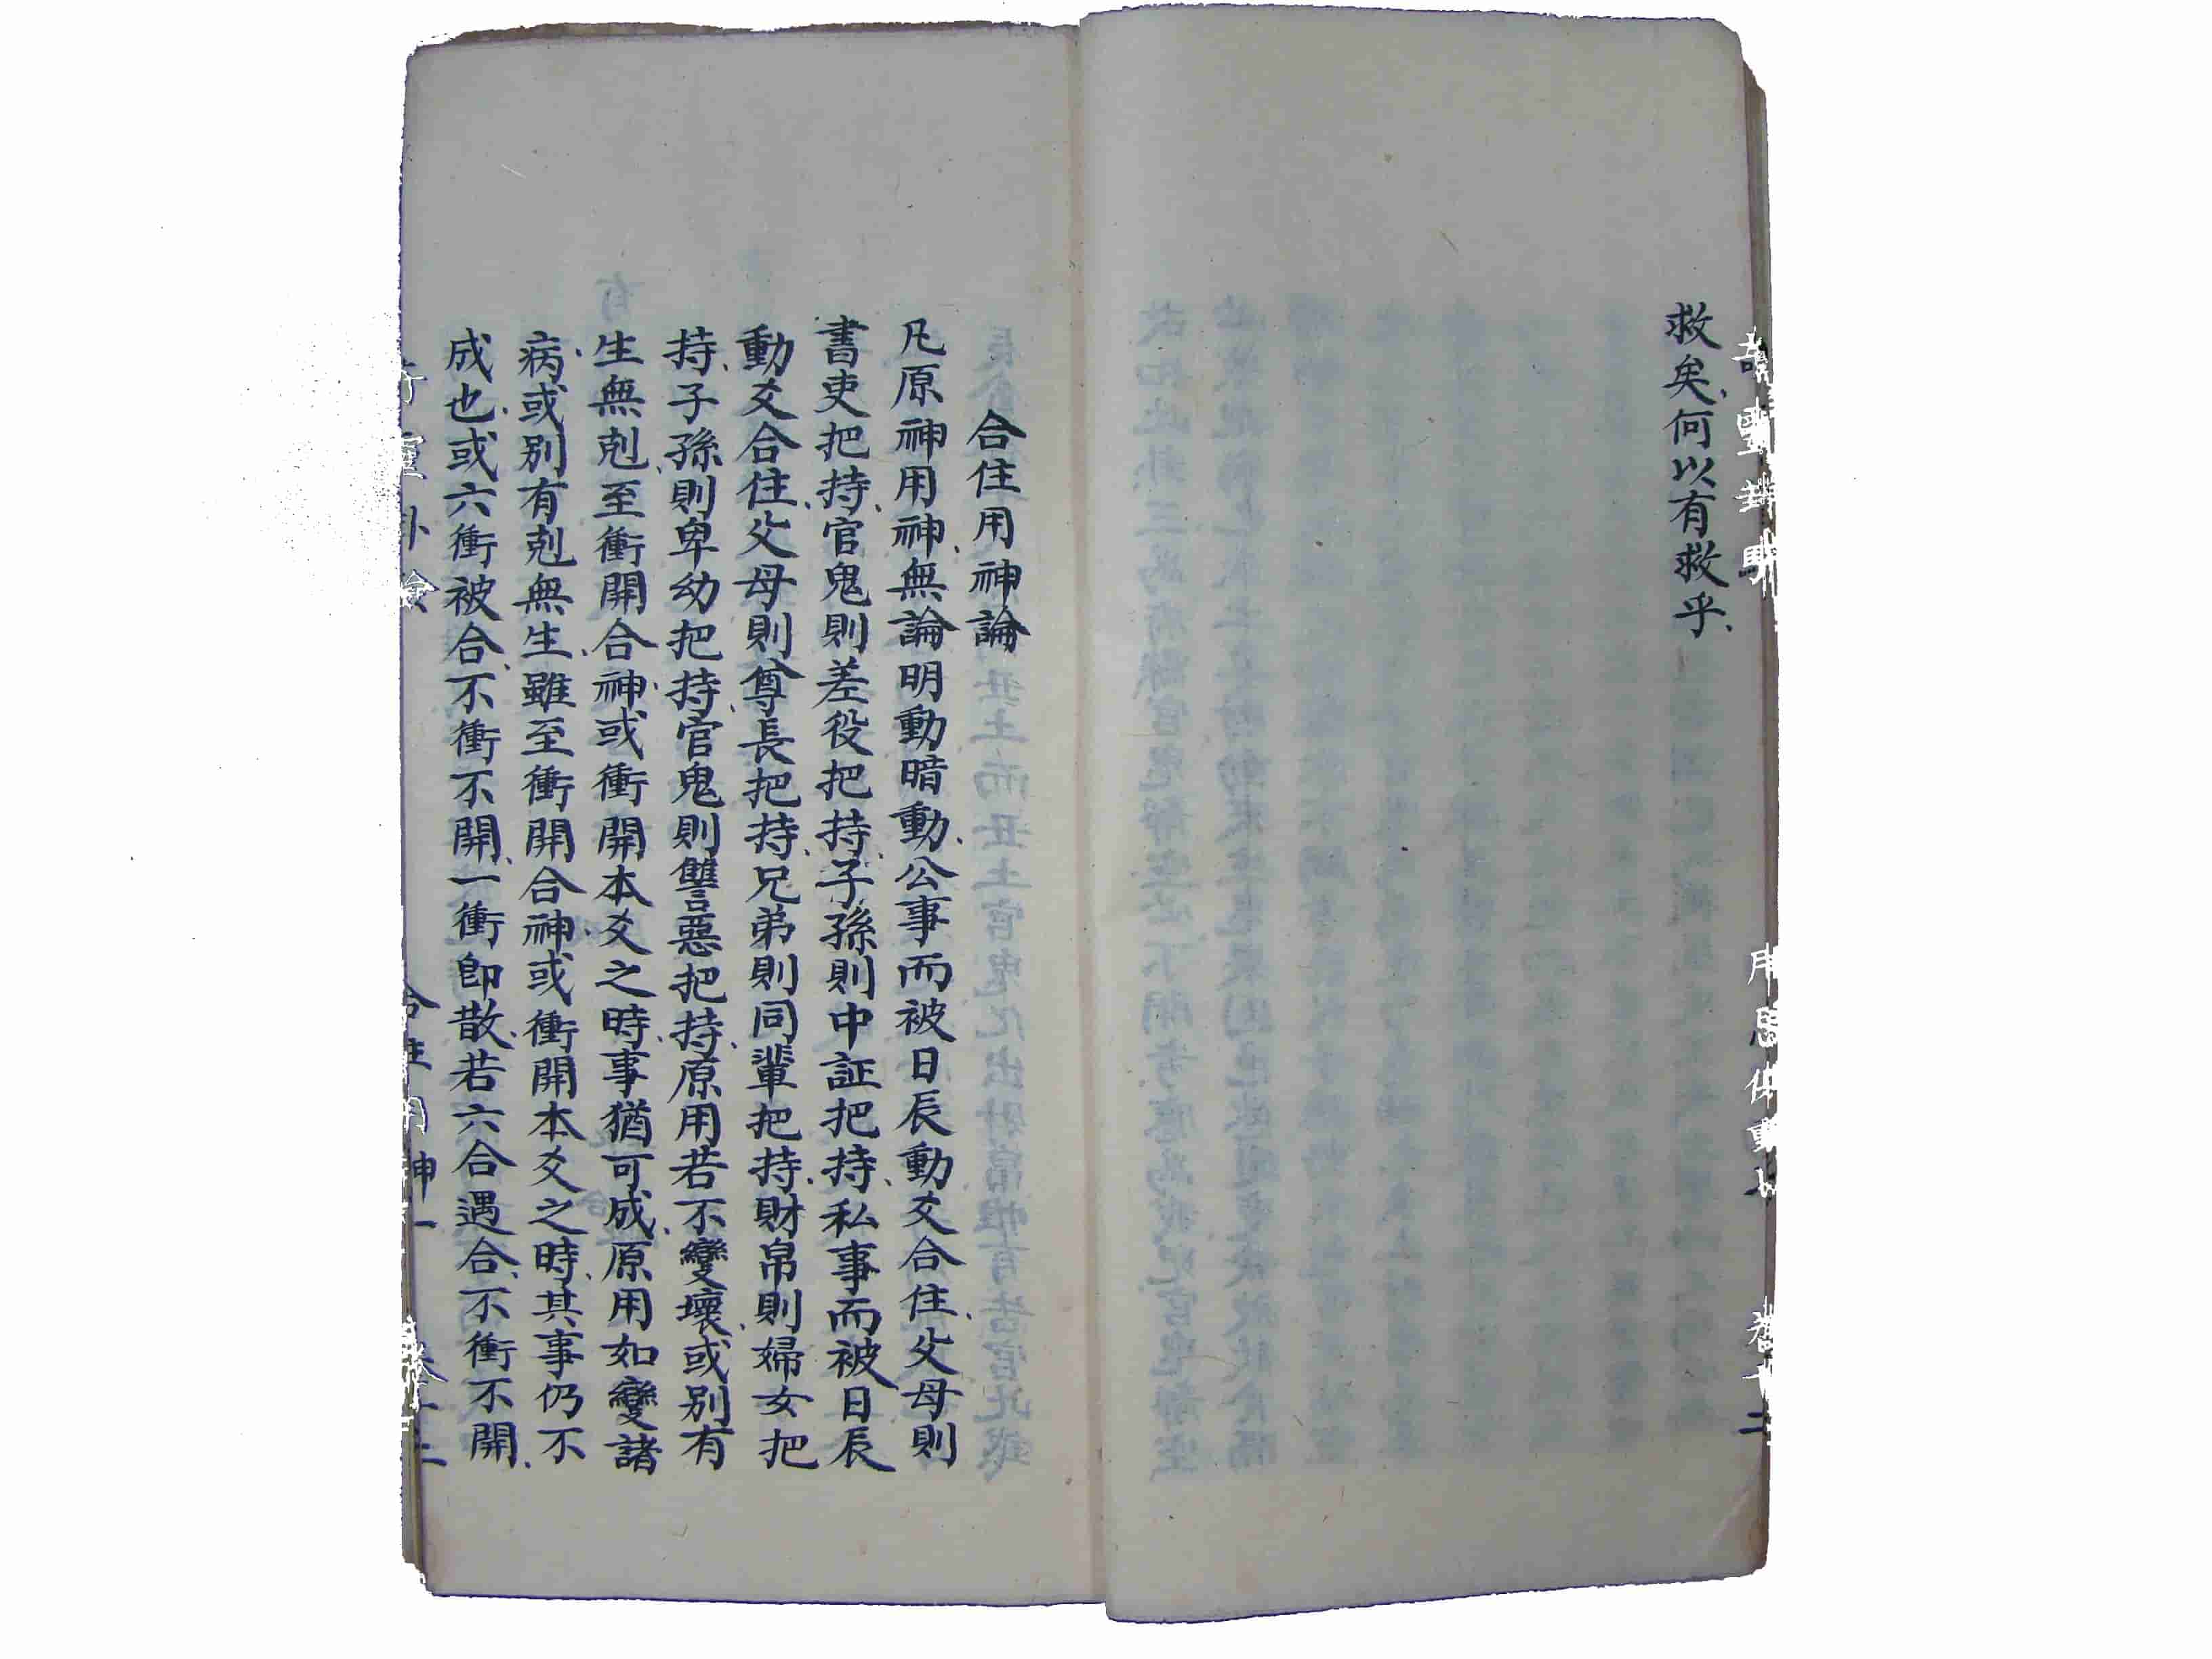 救矣、何以有救乎、
合住用神論
凡原神用神、無論明動暗動、公事而被日辰動爻合住、父母則
書吏把持、官鬼則差役把持、子孫則中証把持、私事而被日辰
動爻合住、父母則尊長把持、兄弟則同輩把持、財帛則婦女把
持、子孫則卑幼把持、官鬼則讐惡把持、原用若不變壞、或別有
生無剋、至衝開合神、或衝開本爻之時、事猶可成、原用如變諸
病、或別有剋無生、雖至衝開合神、或衝開本爻之時、其事仍不
成也、或六衝被合、不衝不開、一衝卽散、若六合遇合、不衝不開、